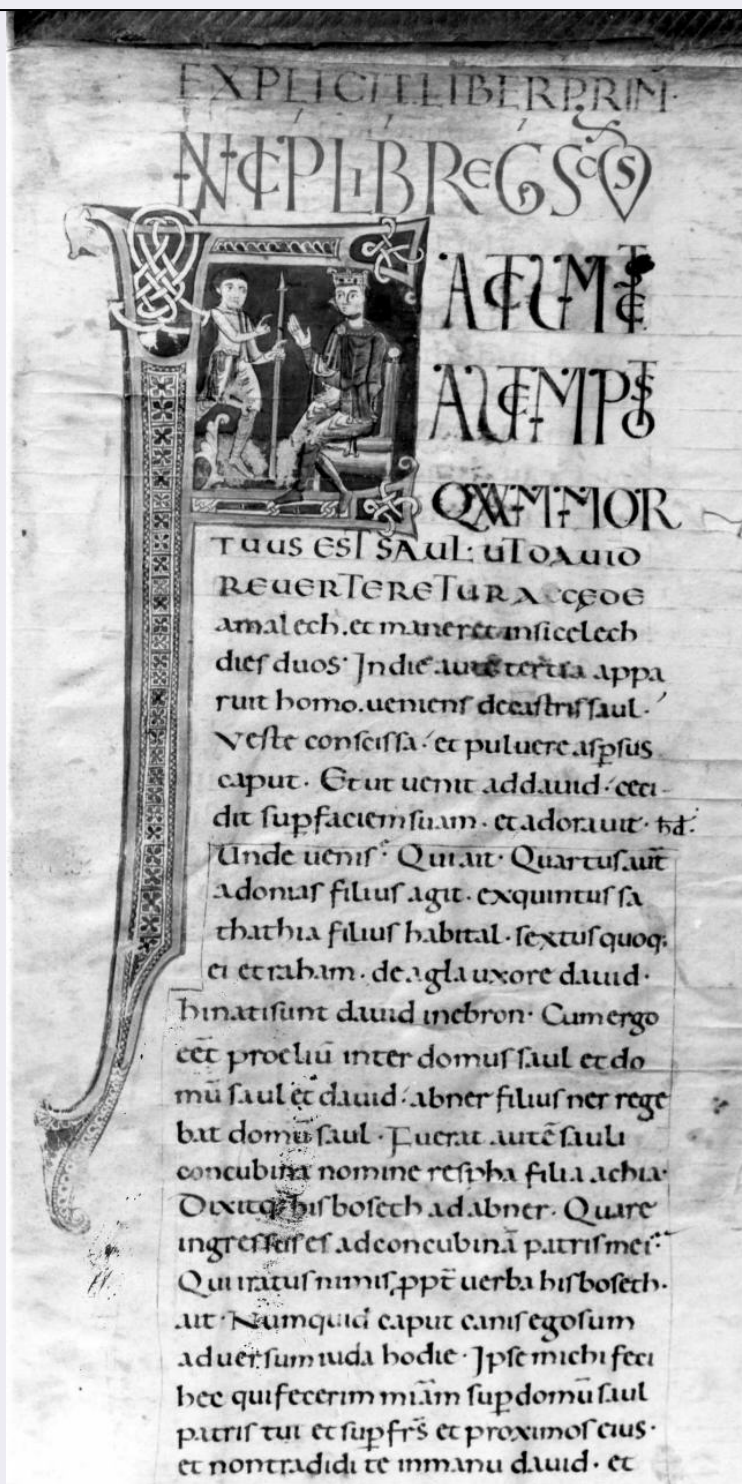 EXPLICIT LIBER PRIM
INCIP LIB REGS SCDS
FACTUM EST
AUTEM POST
QUAM MOR
TUUS EST SAUL: UT DAUID
REUERTERETUR A CĘDE
amalech. et maneret insicelech
dies duos· In die autē tertia appa
ruit homo. ueniens decastris saul·
Veste conscissa· et puluere asp̱sus
caput· Et ut uenit addauid· ceci-
dit sup̱ faciem suam· et adorauit·
Unde uenis· Qui ait· Quartus aut̄
adonias filius agit· exquintus sa
thathia filius habital· sextus quoq;
et raham· de agla uxore dauid·
hi nati sunt dauid inebron· Cum ergo
eēt proeliū inter domus saul et do
mū saul et dauid· abner filius ner rege
bat domū saul· Fuerat autē sauli
concubina nomine respha filia achia·
Dixitq; hisboseth ad abner· Quare
ingressus es ad concubinā patris mei·
Qui iratus nimis ꝓpt̄ uerba hisboseth·
ait· Numquid caput canis ego sum
aduersum iuda hodie· Ipse michi feci
hec qui fecerim miām sup̱ domū saul
patris tui et sup̱ fr̄s et proximos eius·
et non tradidi te inmanu dauid· et